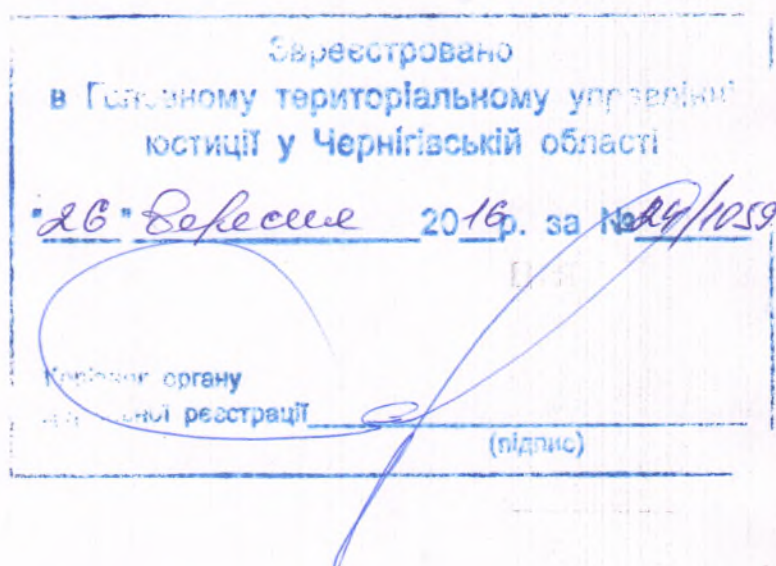 Зареєстровано
в Головному територіальному управлінні
юстиції у Чернігівській області
"26" вересня 2016р. за №24/1059
Керівник органу
державної реєстрації
(підпис)